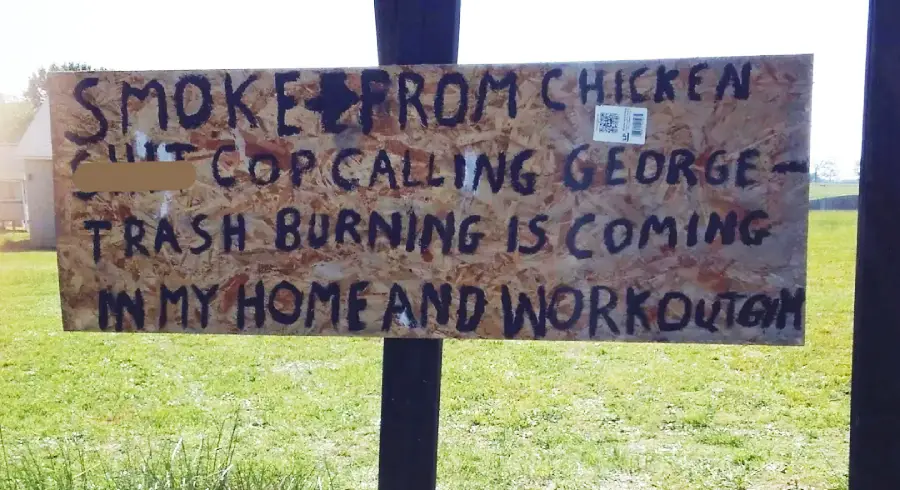 SMOKE FROM CHICKEN
COP CALLING GEORGE-
TRASH BURNING IS COMING
IN MY HOME AND WORKOUT GYM